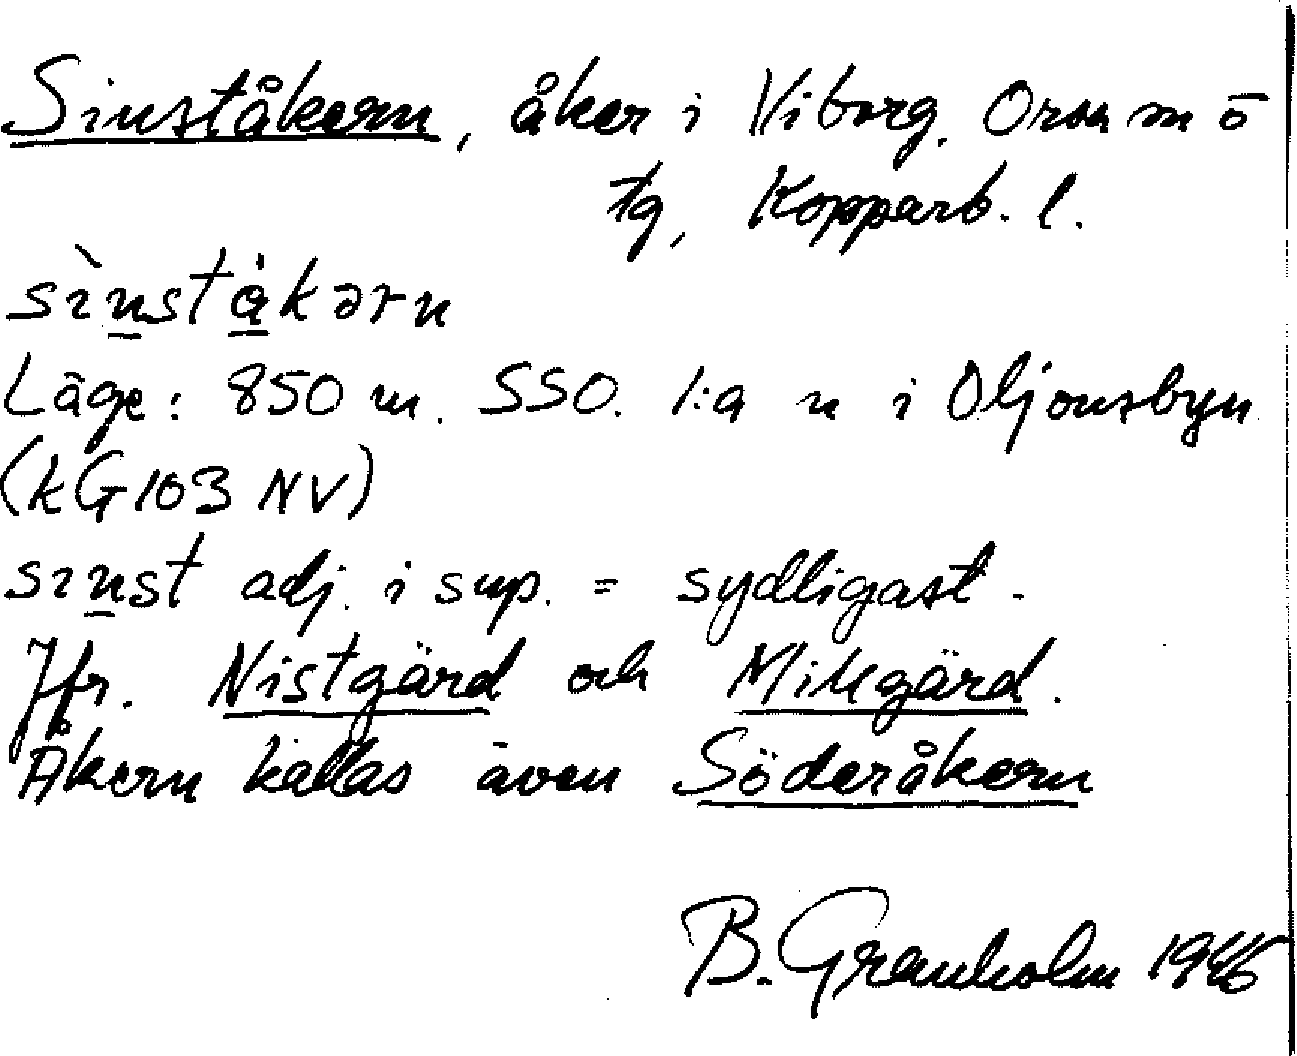 Sinståkern, åker i Viborg. Orsa sn o
tg, Kopparb. l.
sìnståkərn
Läge: 850 m. SSO. l:a n i Oljonsbyn
(kG103 NV)
sinst adj. i sup. = sydligast.
Jfr. Nistgärd och Mikgärd.
Åkern kallas även Söderåkern
B. Granholm 1946